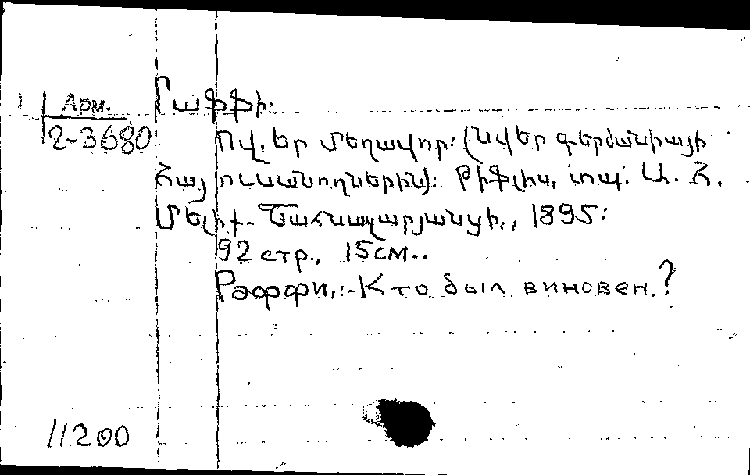 Арм.
2-3680
Րաֆֆի.
Ով. եր մեղավոր: (նվեր գերմանիայի
Հայ ուսանողներին): Թիֆլիս, տպ. Ա. Հ.
Մելիք-Շահնազարյանցի., 1895:
92 стр., 15см..
Раффи.:-Кто был виновен.?
11200